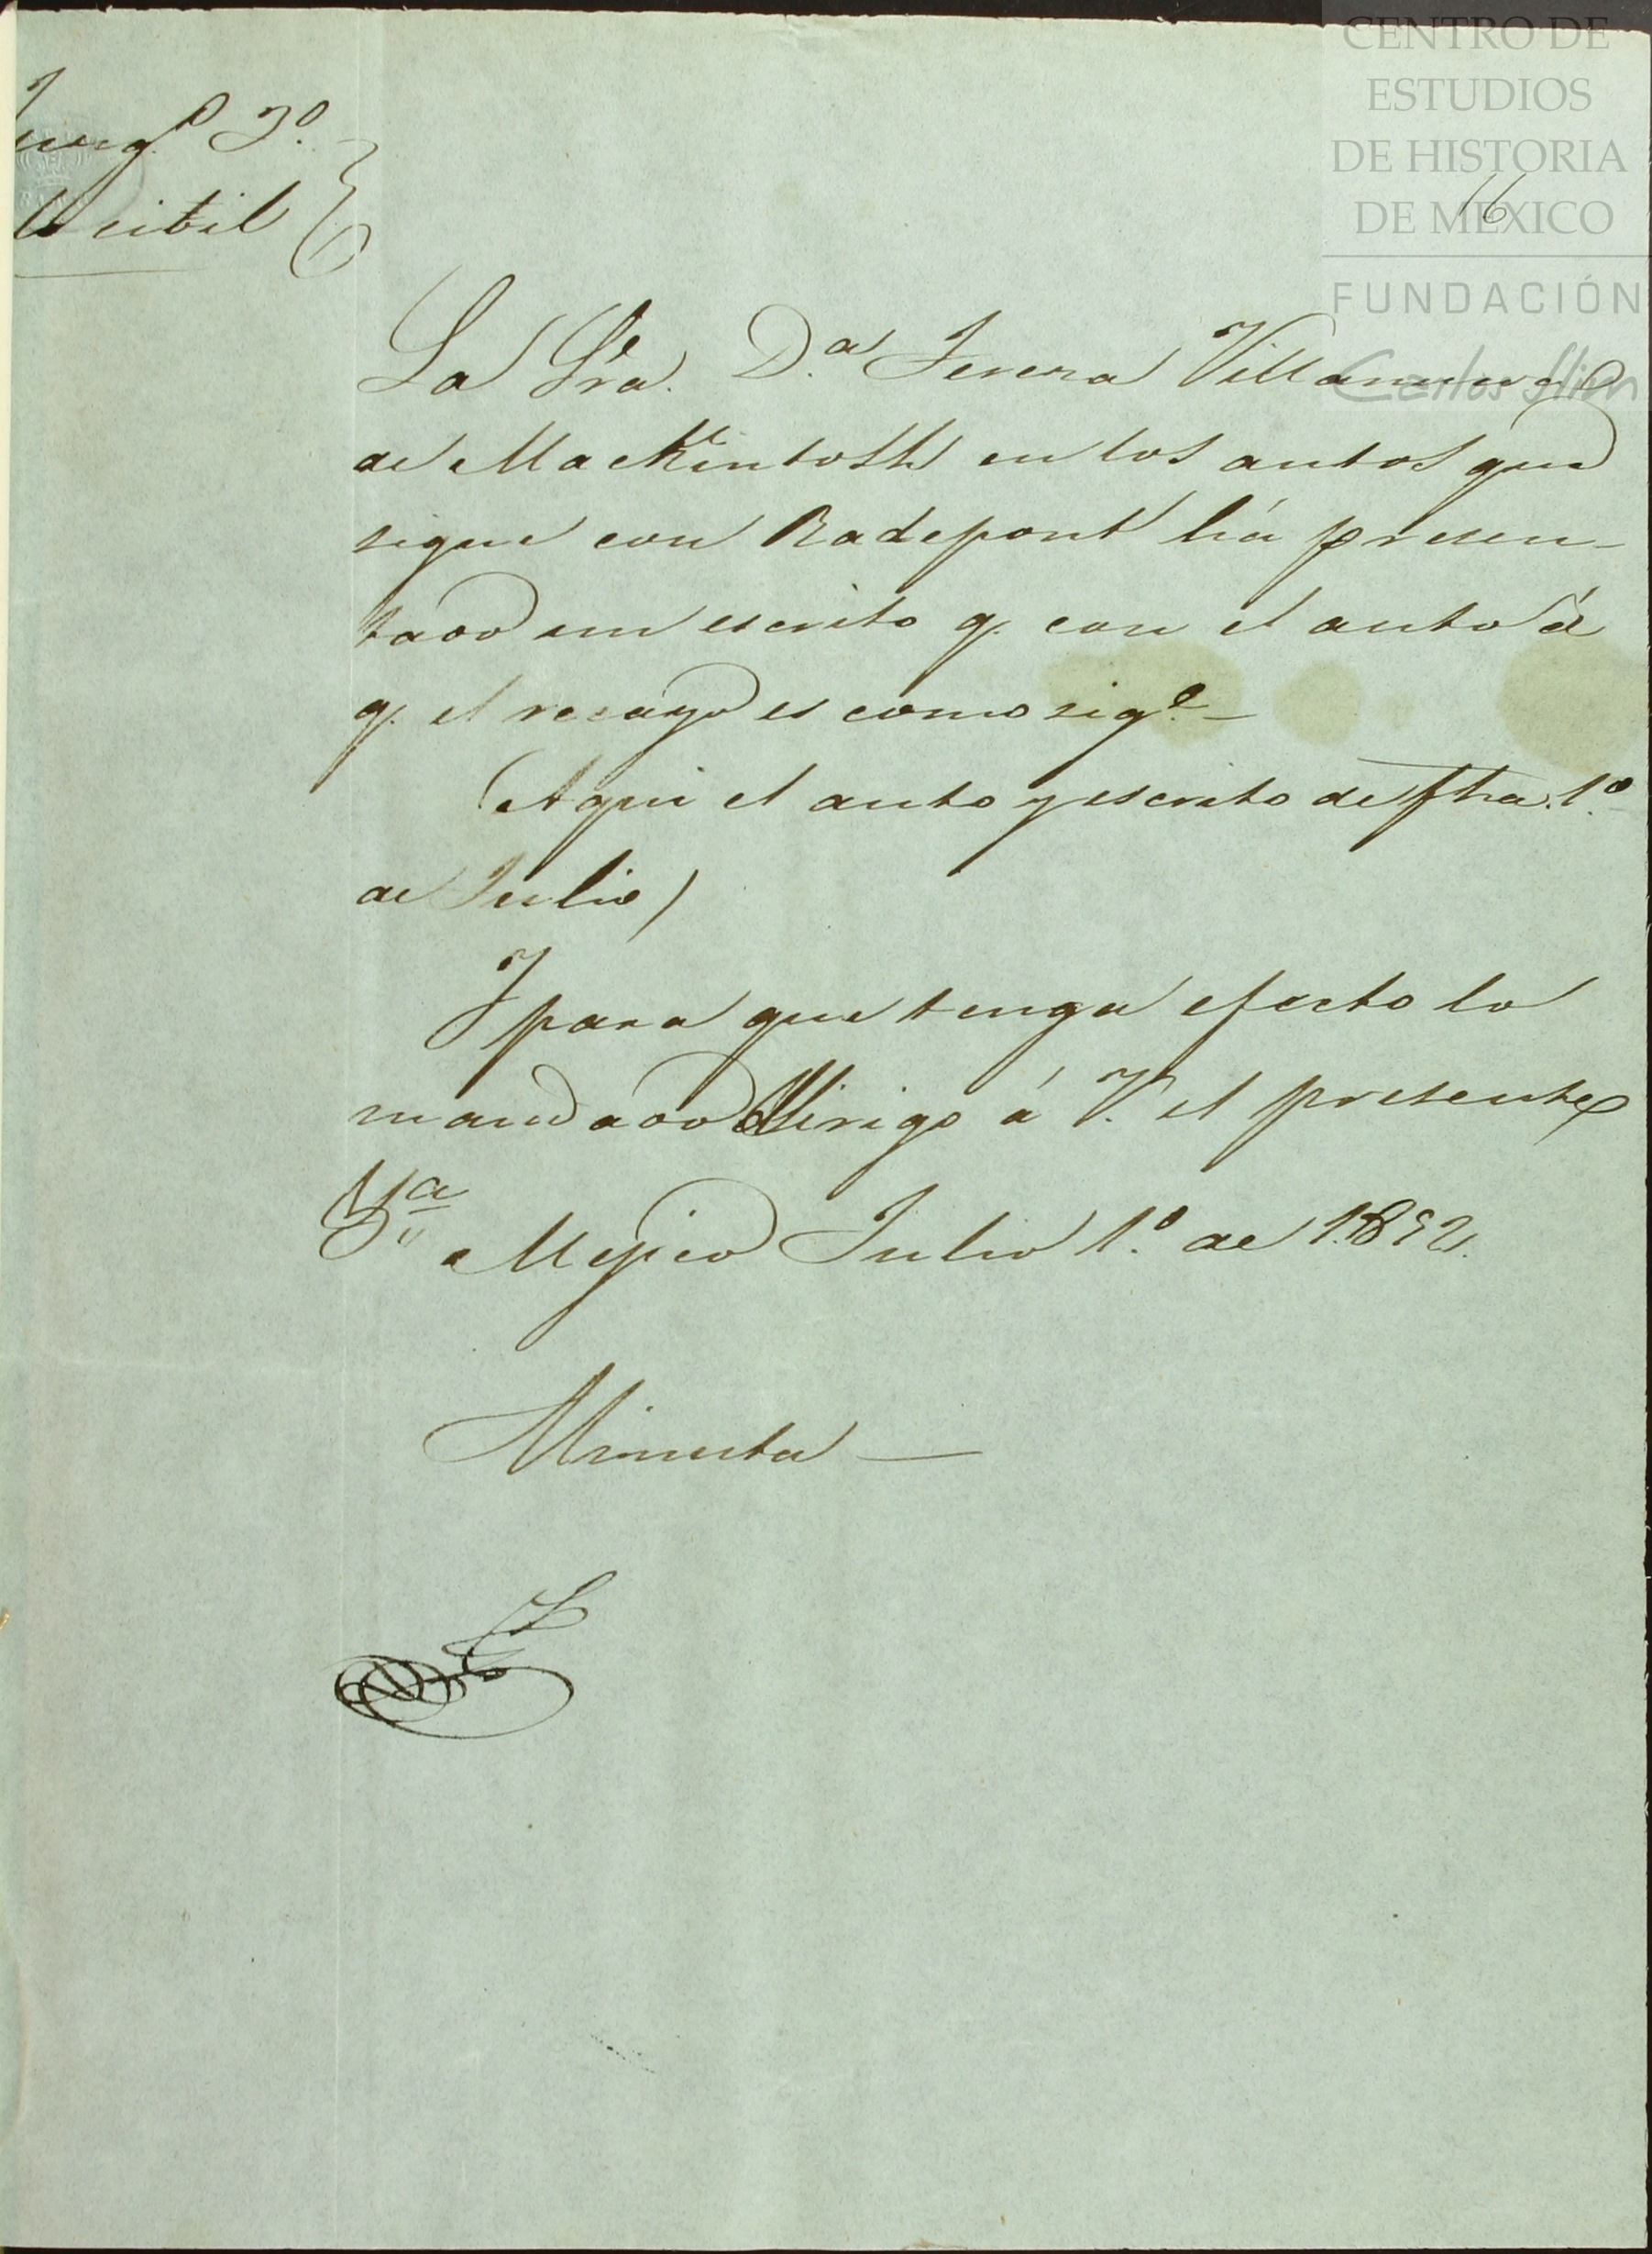 Juzgº 3º.
lo cibil
CENTRO DE
ESTUDIOS
DE HISTORIA
DE MÉXICO
16
FUNDACIÓN
Carlos Slim
La Sra. D.ª Teresa Villanueva
de Mackintosh en los autos que
sigue con Radepont há presen-
tado un escrito q. con el auto á
q. el recayó es como sigᵉ.—
(Aqui el auto y escrito de fha. 1º.
de Julio)
Y para que tenga efecto lo
mandado dirigo á V. el presente
Mejico Julio 1º. de 1852.
Minuta —